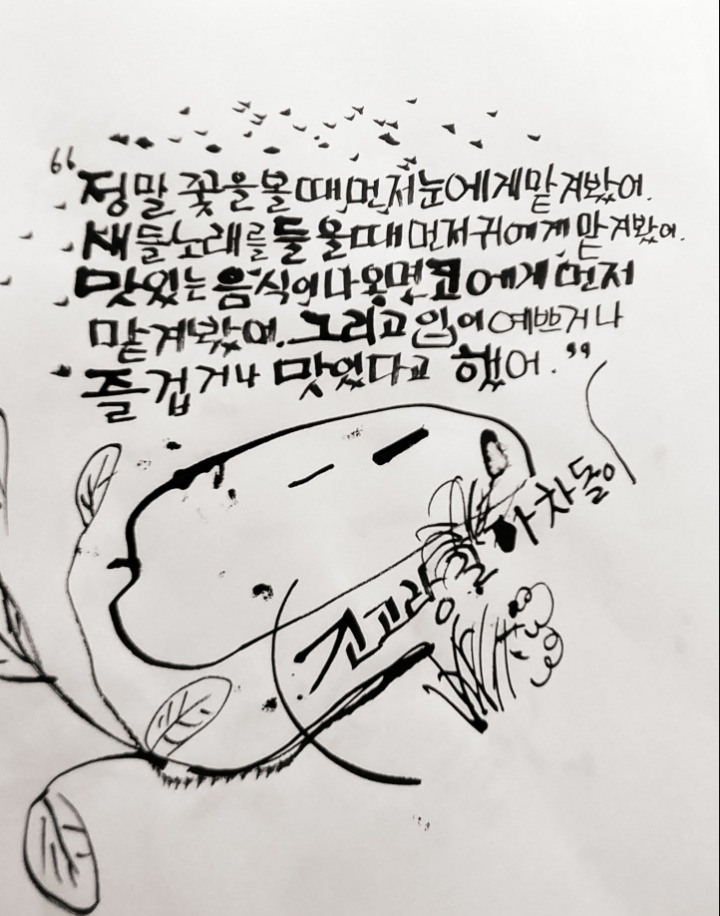 “정말 꽃을 볼 때, 먼저 눈에게 맡겨봤어.
새들 노래를 들을 때 먼저 귀에게 맡겨봤어.
맛있는 음식이 나오면 코에게 먼저
맡겨봤어. 그리고 입이 예쁘거나
즐겁거나 맛있다고 했어.”
긴고랑길 아차돌이